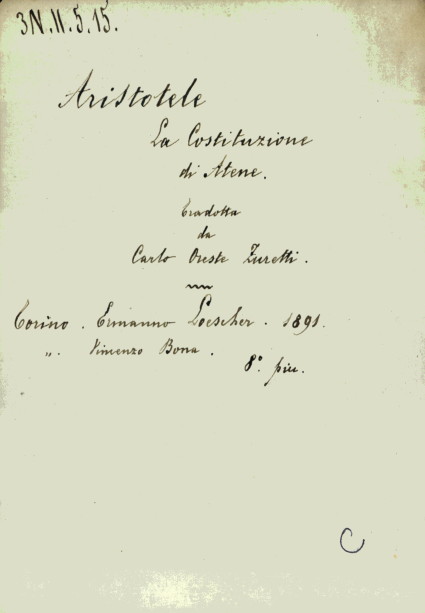 3N.II.5.15.
Aristotele
La Costituzione
di Atene.
Tradotta
da
Carlo Oreste Zuretti.
Torino. Ermanno Loescher. 1891.
„. Vincenzo Bona.
8°. picc.
C